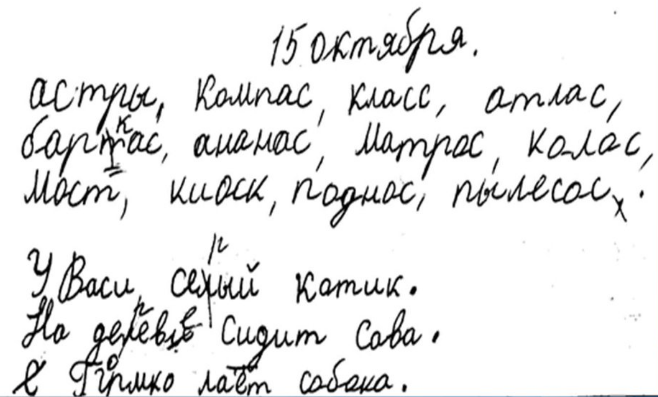 15 октября.
астры, компас, класс, атлас,
баркас, ананас, матрос, колос,
мост, киоск, поднос, пылесос.
У Васи серый котик.
На дереве сидит сова.
Громко лает собака.